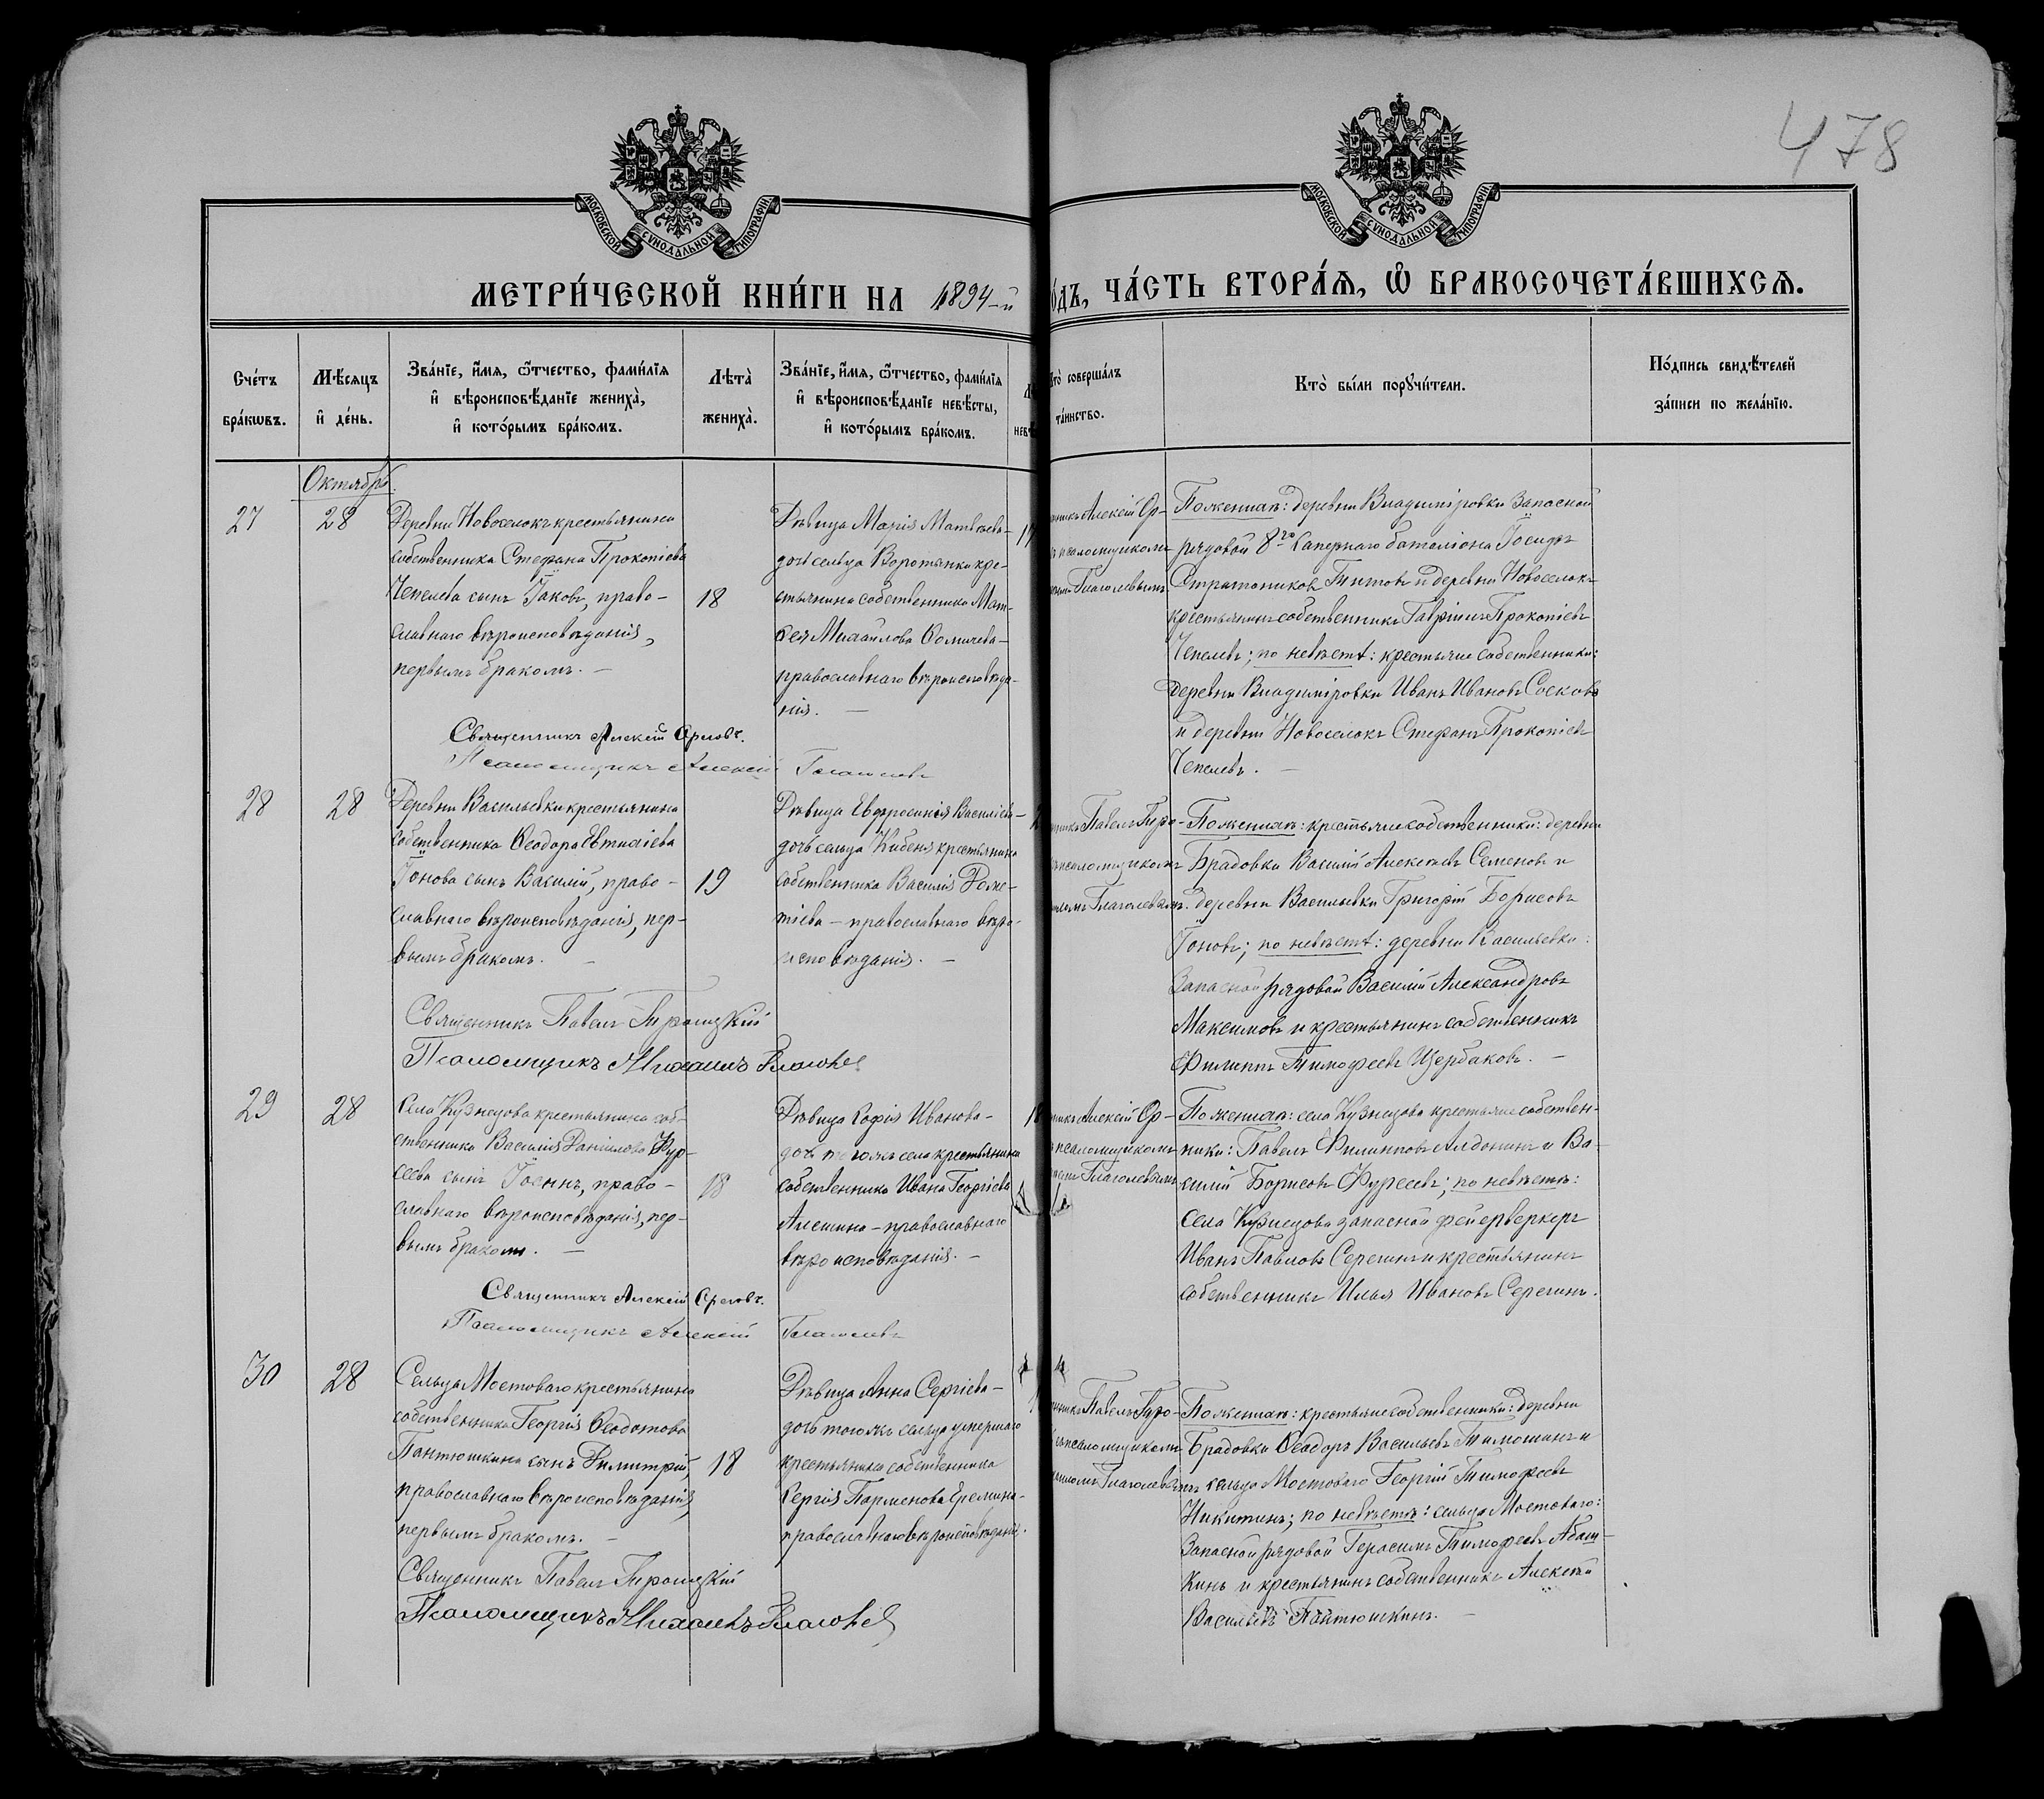 478
МОСКОВСКОЙ СѴНОДАЛЬНОЙ ТИПОГРАФІИ
МОСКОВСКОЙ СѴНОДАЛЬНОЙ ТИПОГРАФІИ
МЕТРИ́ЧЕСКОЙ КНИ́ГИ НА 1894-й
о́дъ, ЧА́СТЬ ВТОРА́Я, Ѡ҆ БРАКОСОЧЕТА́ВШИХСЯ.
Сче́тъ
бра́кѡвъ.
Мѣ́сяцъ
и҆ де́нь.
Зва́нїе, и҆́мя, ѻ҆́тчество, фами́лїя
и҆ вѣроисповѣ́данїе жениха̀,
и҆ кото́рымъ бра́комъ.
Лѣта̀
жениха̀.
Зва́нїе, и҆́мя, ѻ҆́тчество, фами́лїя
и҆ вѣроисповѣ́данїе невѣ́сты,
и҆ кото́рымъ бра́комъ.
то̀ соверша́лъ
та́инство.
Кто̀ бы́ли порꙋчи́тели.
По́дпись свидѣ́телей
за́писи по жела́нїю.
Октябрь.
27
28
Деревни Новоселокъ крестьянина
собственника Стефана Прокопіева
Чепелева сынъ Іаковъ, право-
славнаго вѣроисповѣданія,
первымъ бракомъ. —
18
Дѣвица Марія Матвѣева-
дочь сельца Воротянки кре-
стьянина собственника Мат-
ѳея Михайлова Ѳомичева-
православнаго вѣроисповѣда-
нія. —
Алексій Ор-
псаломщикомъ
Глаголевымъ
По женихѣ: деревни Владиміровки Запасной
рядовой 8го Сапернаго баталіона Іосифъ
Стратониковъ Титовъ и деревни Новоселокъ
крестьянинъ собственникъ Гавріилъ Прокопіевъ
Чепелевъ; по невѣстѣ: крестьяне собственники:
деревни Владиміровки Иванъ Ивановъ Сосковъ
и деревни Новоселокъ Стефанъ Прокопіевъ
Чепелевъ. —
Священникъ Алексій Орловъ.
Псаломщикъ Алексій Глаголевъ
28
28
Деревни Васильевки крестьянина
собственника Ѳеодора Евтихіева
Іонова сынъ Василій, право-
славнаго вѣроисповѣданія, пер-
вымъ бракомъ. —
19
Дѣвица Евфросинія Василіева-
дочь сельца крестьянина
собственника Василія
православнаго вѣро-
исповѣданія. —
Павелъ
псаломщикомъ
Глаголевымъ.
По женихѣ: крестьяне собственники: деревни
Брадовки Василій Алексѣевъ Семеновъ и
деревни Васильевки Григорій Борисовъ
Іоновъ; по невѣстѣ: деревни Васильевки:
Запасной рядовой Василій Александровъ
Максимовъ и крестьянинъ собственникъ
Филиппъ Тимофеевъ Щербаковъ. —
Священникъ Павелъ
Псаломщикъ Михаилъ Глаголев
29
28
Села Кузнецова крестьянина соб-
ственника Василія Даніилова Фур-
сеева сынъ Іосифъ, право-
славнаго вѣроисповѣданія, пер-
вымъ бракомъ. —
18
Дѣвица Софія Иванова-
дочь того жъ села крестьянина
собственника Ивана Георгіева
Алешина - православнаго
вѣроисповѣданія. —
18
Алексій Ор-
псаломщикомъ
Глаголевымъ
По женихѣ: села Кузнецова крестьяне собствен-
ники: Павелъ Филипповъ Алдонинъ и Ва-
силій Борисовъ Фурсеевъ; по невѣстѣ:
села Кузнецова запасной фейерверкеръ
Иванъ Павловъ Серегинъ и крестьянинъ
собственникъ Илья Ивановъ Серегинъ.
Священникъ Алексій Орловъ.
Псаломщикъ Алексій Глаголевъ
30
28
Сельца Мостоваго крестьянина
собственника Георгія Ѳеодотова
Пантюшкина сынъ Димитрій,
православнаго вѣроисповѣданія,
первымъ бракомъ. —
18
Дѣвица Анна Сергіева-
дочь того жъ сельца умершаго
крестьянина собственника
Сергія Парменова Еремина-
православнаго вѣроисповѣданія.
Павелъ
псаломщикомъ
Глаголевымъ
По женихѣ: крестьяне собственники: деревни
Брадовки Ѳеодоръ Васильевъ Тимошинъ и
сельца Мостоваго Георгій Тимофеевъ
Никитинъ; по невѣстѣ: сельца Мостоваго:
Запасной рядовой Герасимъ Тимофеевъ Абаш-
кинъ и крестьянинъ собственникъ Алексѣй
Васильевъ Пантюшкинъ. —
Священникъ Павелъ
Псаломщикъ Михаилъ Глаголев